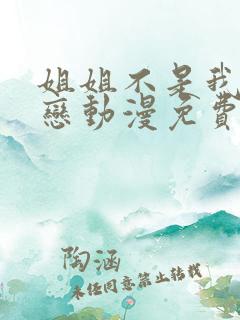 姐姐不是我
戀動漫免費
陶涵
未经同意禁止转载